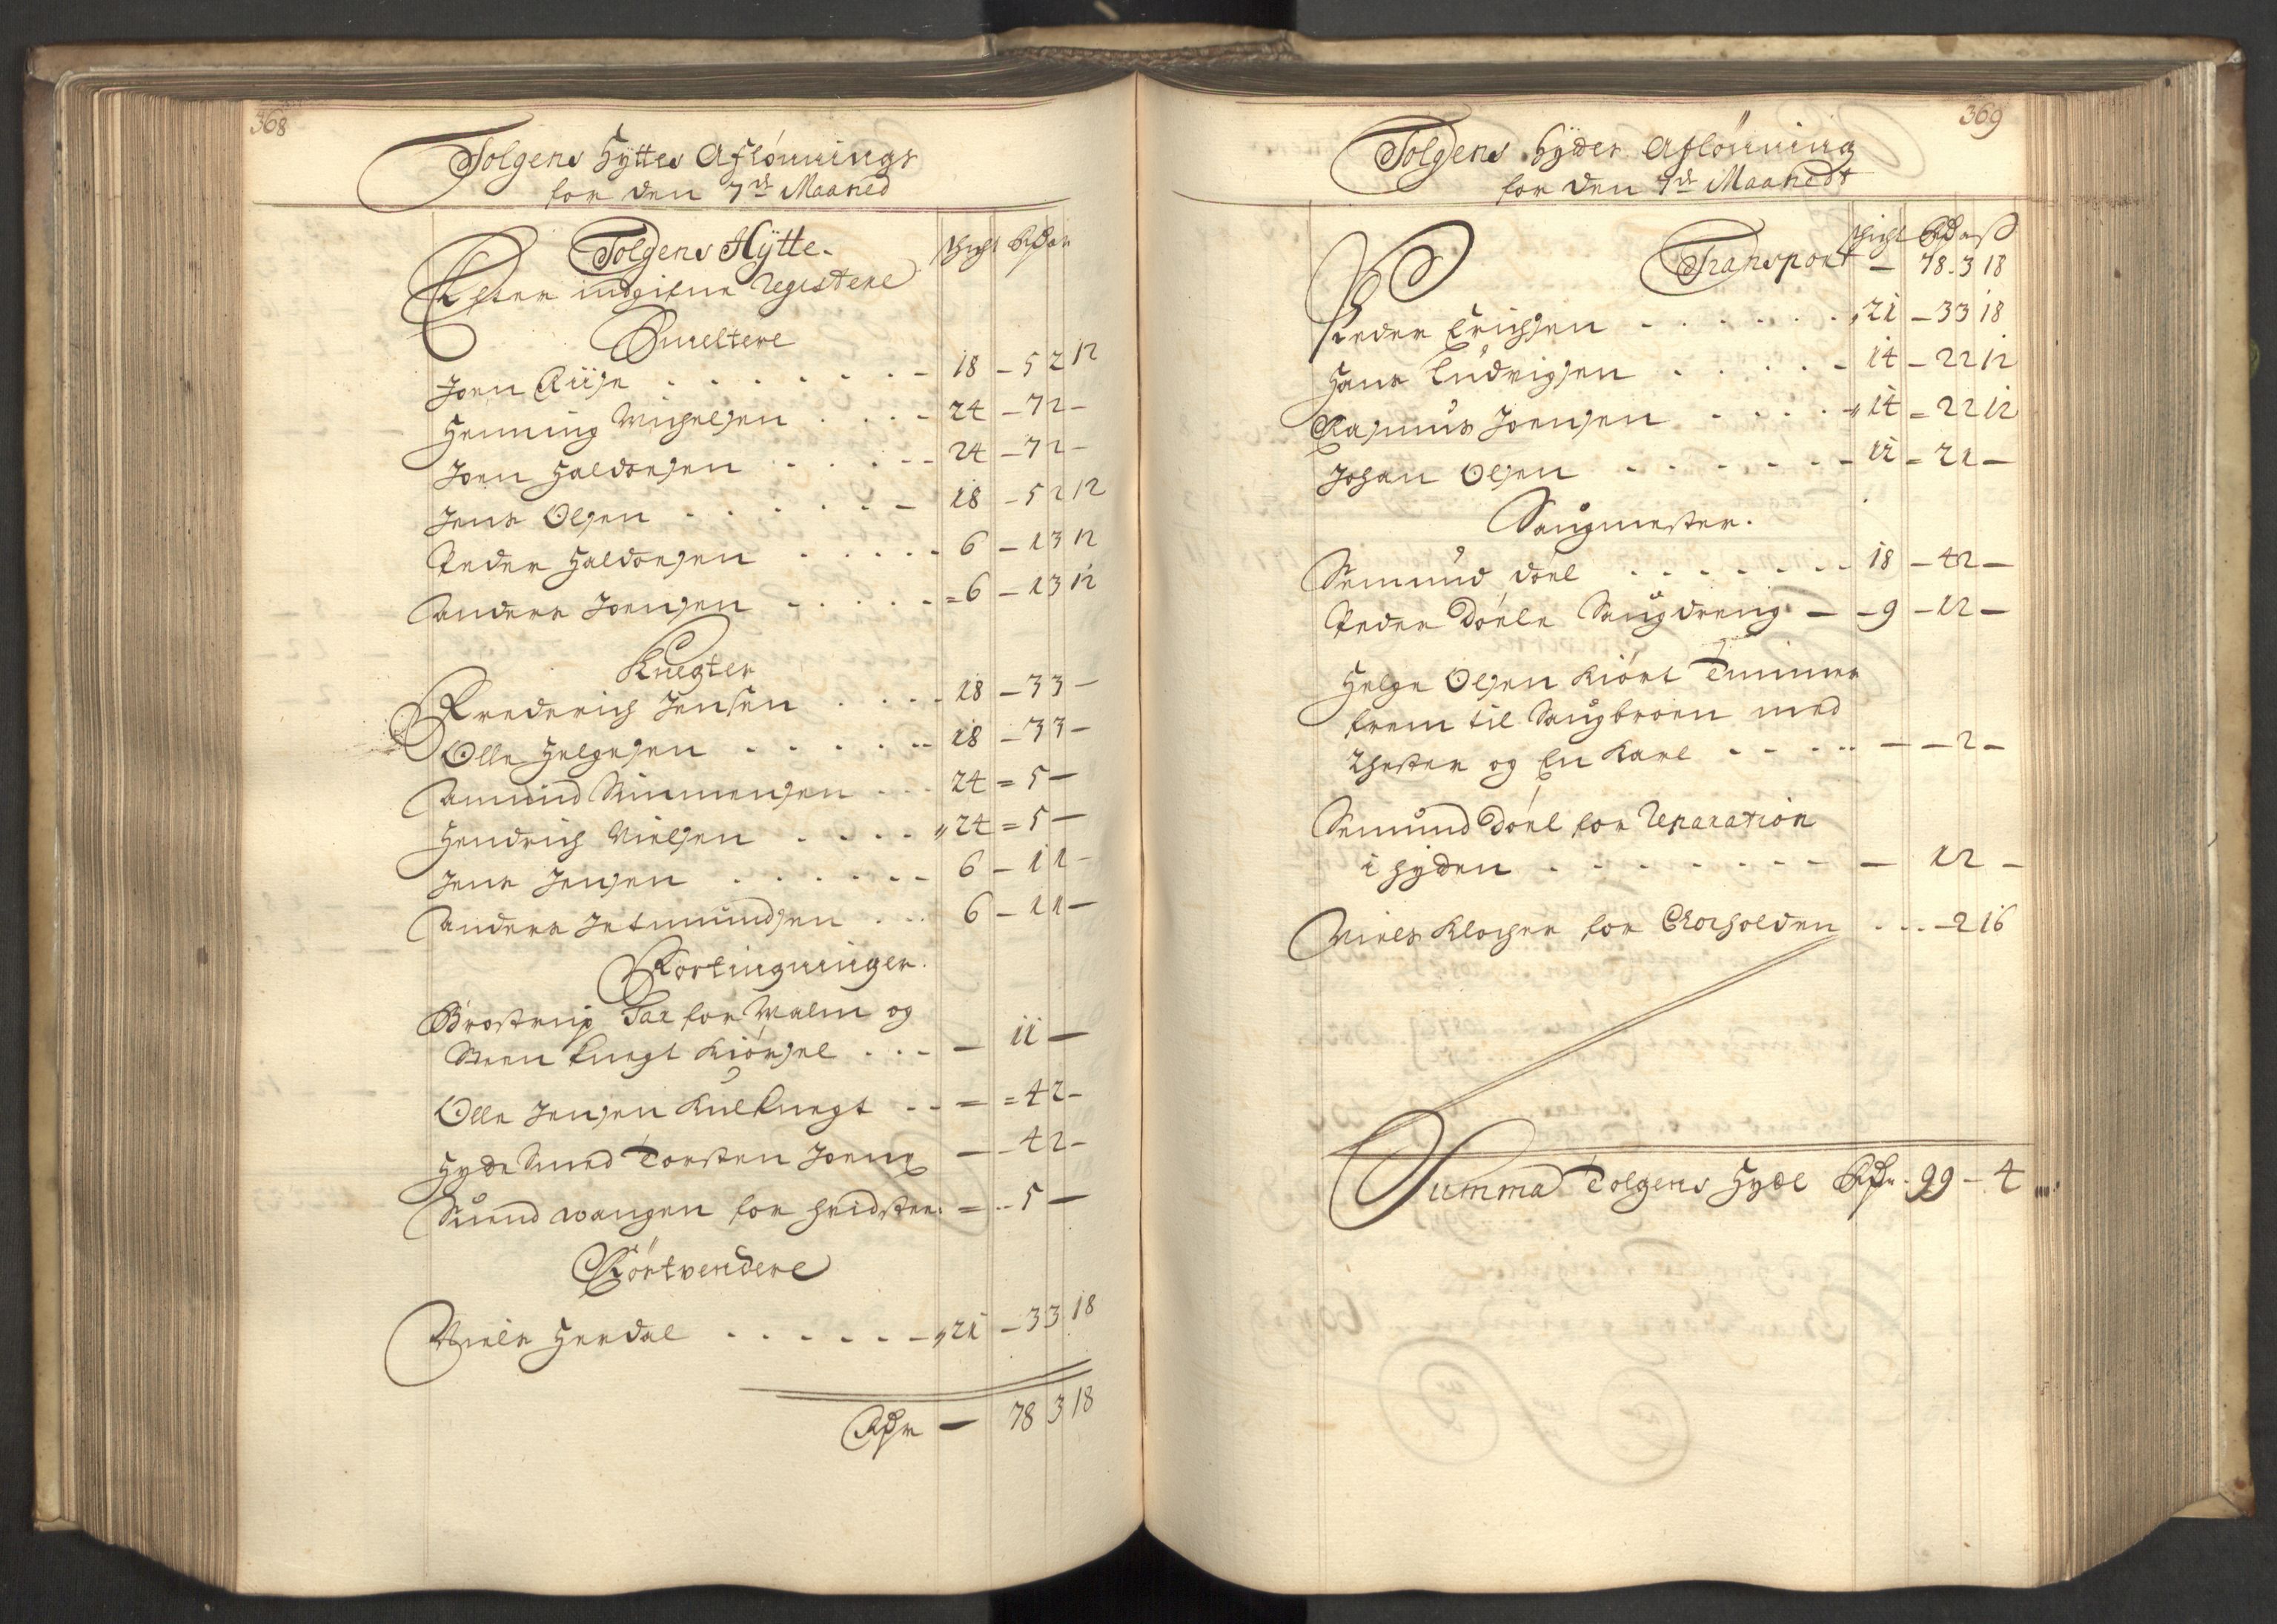 368
Tolgens Hÿttes Aflønnings
for den 7de Maaned
Tolgens Hÿtte.
Efter indgifne Registere
Schicht Rdr
Smeltere
Joen Riise - 18 - 5 2 12
Henning Michelsen - 24 - 7 2 -
Joen Haldorsen - 24 - 7 2 -
Jens Olsen - 18 - 5 2 12
Peder Haldorsen - 6 - 1 3 12
Anders Joensen - 6 - 1 3 12
Knegter
Frederich Jensen - 18 - 3 3 -
Olle Helgesen - 18 - 3 3 -
Amund Simmensen - 24 = 5 -
Hendrich Nielsen - 24 = 5 -
Jens Jensen - 6 - 1 1 -
Anders Jetmundsen - 6 - 1 1 -
Fortingninger.
Brostrup Tax for Malm og
Steen Knegt Kiørsel - 11 -
Olle Jensen Kulknegt - = 4 2 -
Hyde Smed Torsten Joens - 4 2 -
Svend Wangen for hridster = 5 -
Röstvendere
Niels Herdal - 21 - 3 3 18
Rdr - 78 3 18
369
Tolgens Hyder Aflönning
for den 7de Maaneds
Schicht Rdr
Transport - 78. 3 18
Peder Erichsen - 21 - 3 3 18
Hans Ludvigsen - 14 - 2 2 12
Rasmus Joensen - 14 = 2 2 12
Johan Olsen - 12 = 2 1 -
Saugmester.
Semund döel - 18 - 4 2 -
Peder Döele Saugdreng - 9 - 1 2 -
Helge Olsen kiört Timmer
frem til Saugbroen med
2 hester og En Karl - - 2 -
Semund Döel for Reparation
i hyden - 1 2 -
Niels Klocker for Rocholden - 2 16
Summa Tolgens Hyde Rdr. 99 - 4